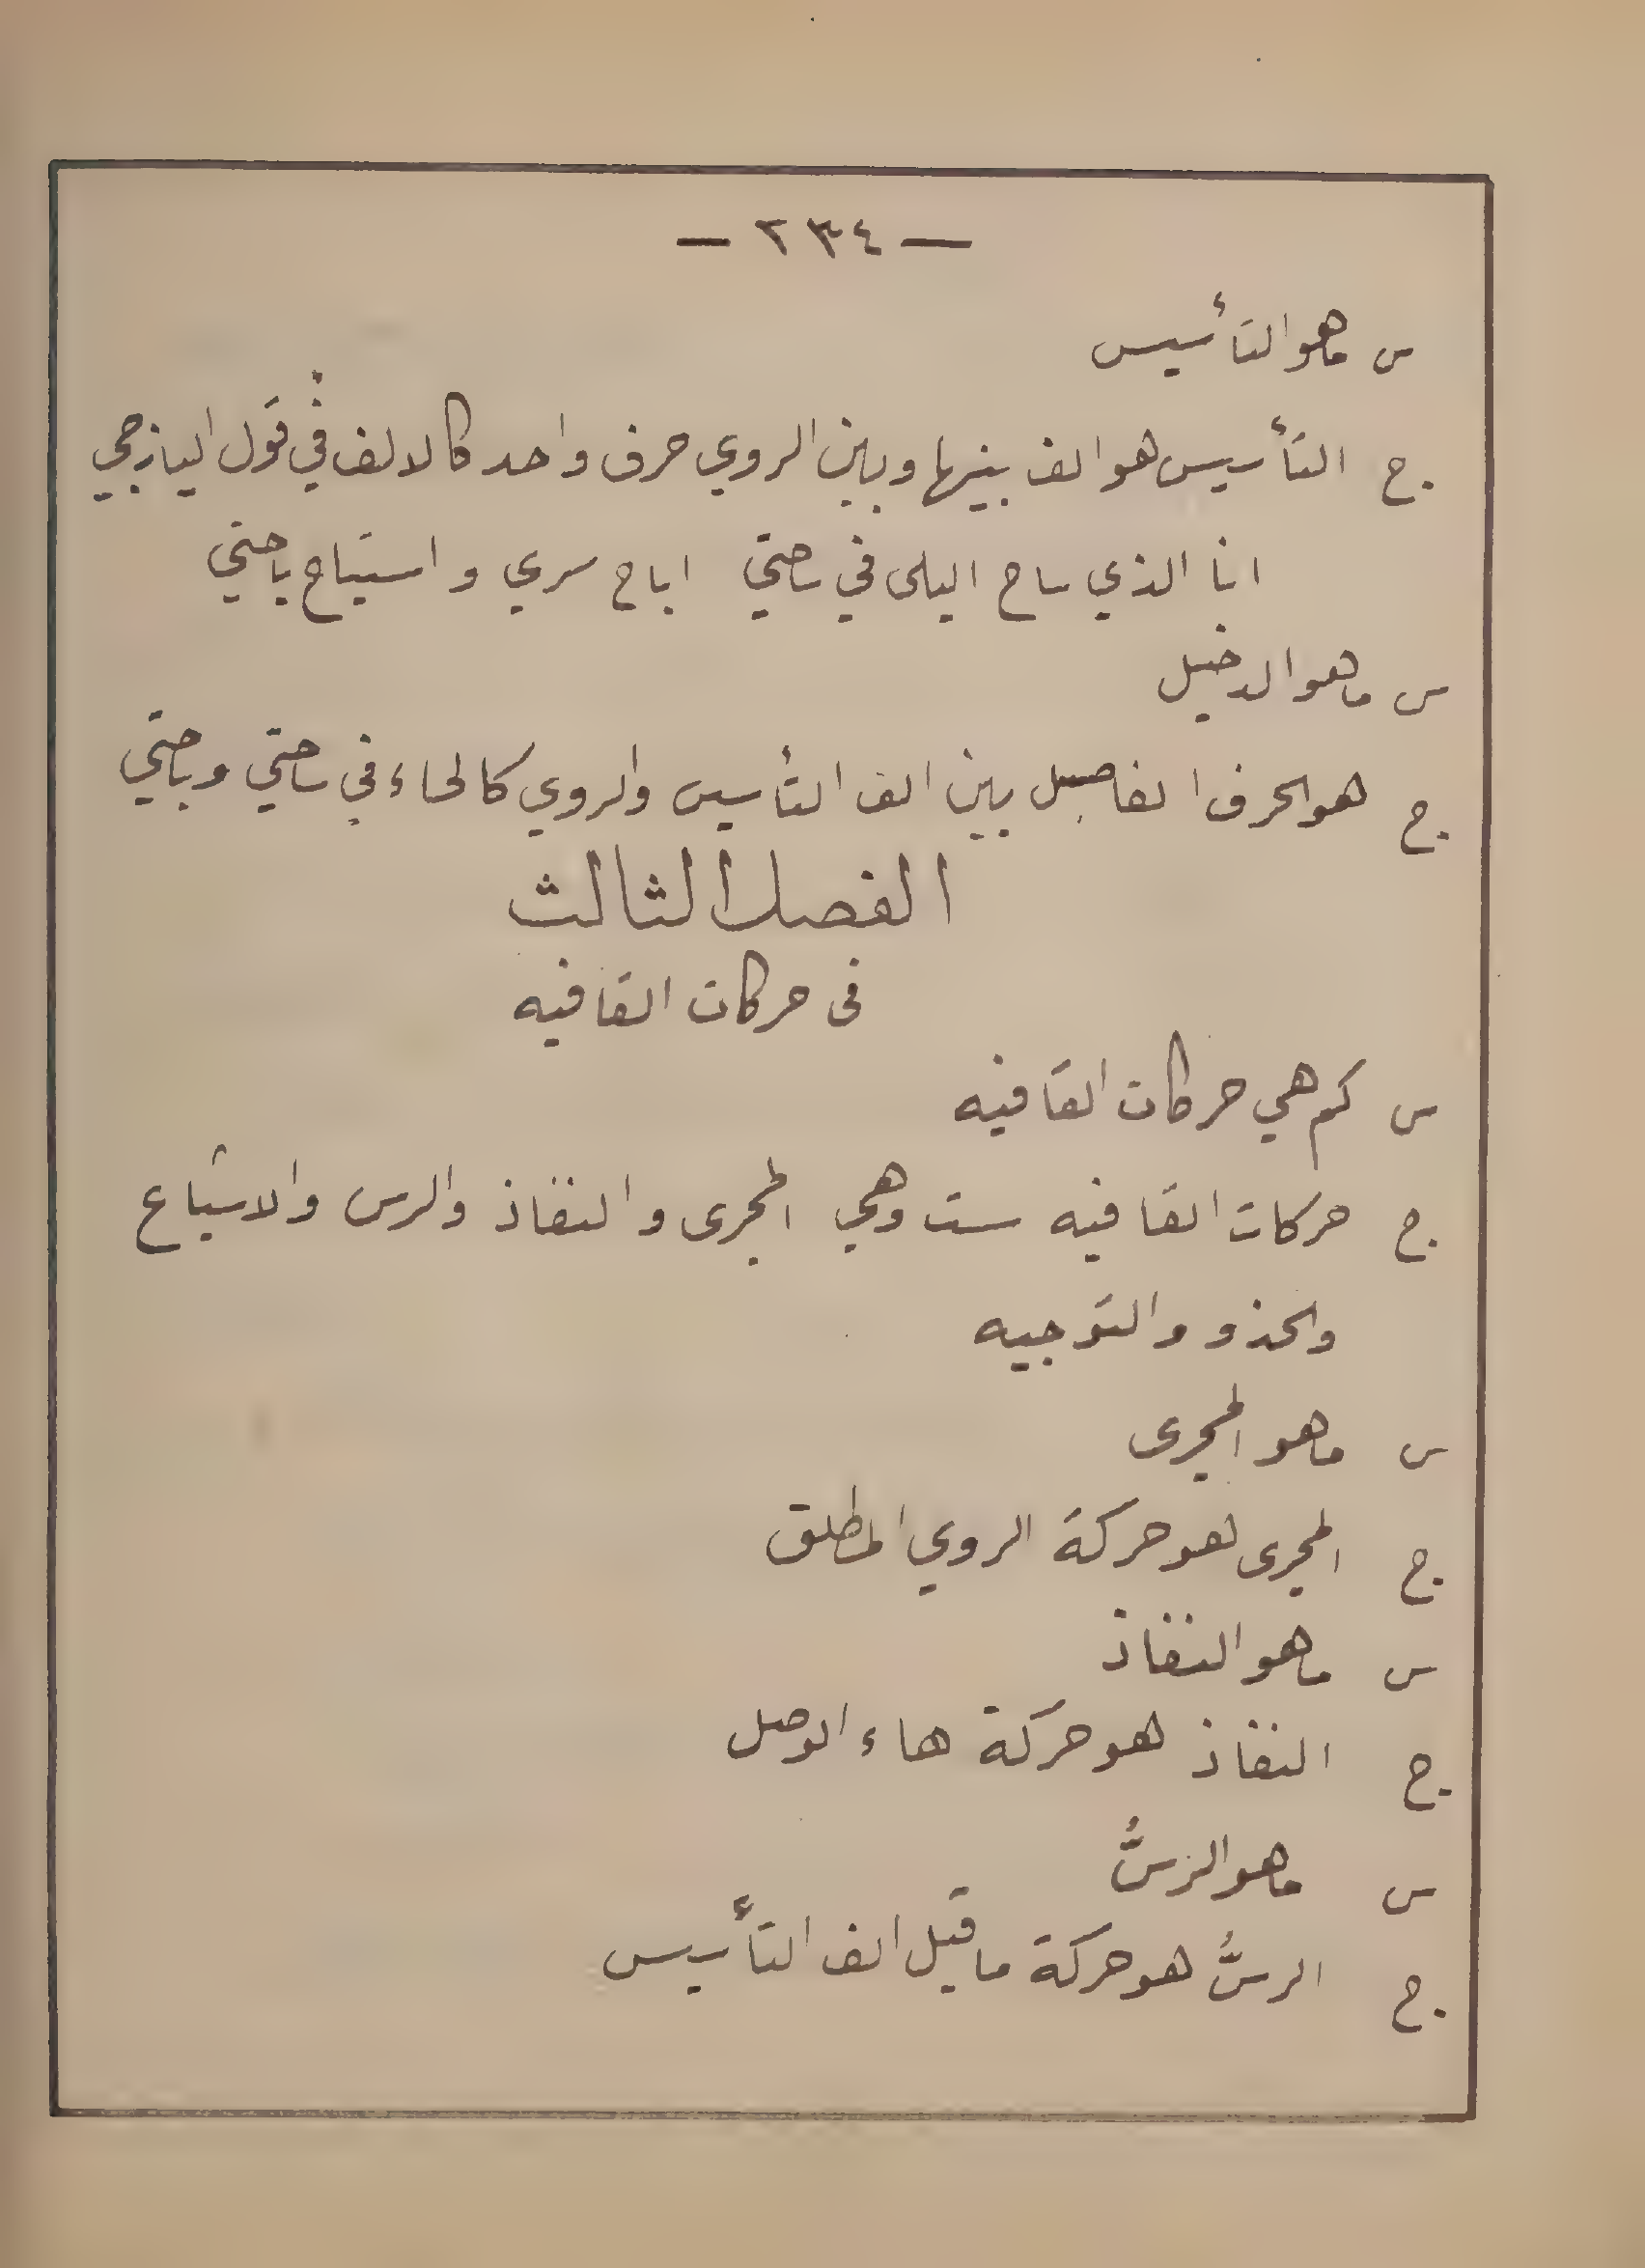 — ٢٣٤ —
س ماهو التأسيس
ج التأسيس هو الف بينها وبين الروي حرف واحد كالالف في قول اليازجي
انا الذي ساح البلى في ساحتي اباح سري واستباح باحتي
س ماهو الدخيل
ج هو الحرف الفاصل بين الف التأسيس والروي كالحاء في ساحتي وباحتي
الفصل الثالث
فى حركات القافيه
س كم هي حركات القافيه
ج حركات القافيه ست وهي المجرى والنفاذ والرس والاشباع
والحذو والتوجيه
س ماهو المجرى
ج المجرى هو حركة الروي المطلق
س ماهو النفاذ
ج النفاذ هو حركة هاء الوصل
س ماهو الرسُّ
ج الرسُّ هو حركة ماقبل الف التأسيس